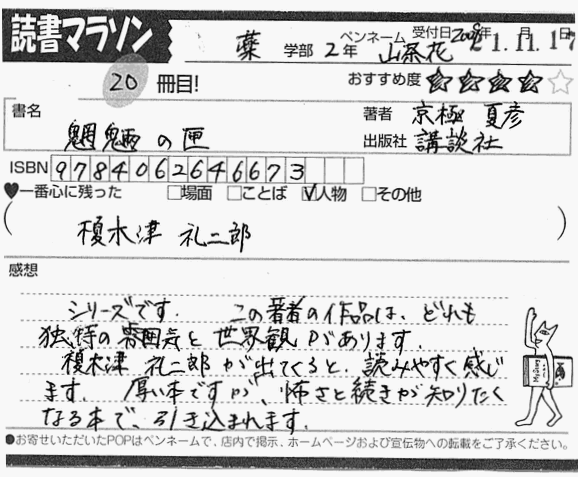 読書マラソン
薬 学部 2年 ペンネーム 山茶花 受付日 21.11.17
20 冊目! おすすめ度 ★★★★☆
書名 魍魎の匣
著者 京極 夏彦
出版社 講談社
ISBN 9784062646673
♥一番心に残った □場面 □ことば ☑人物 □その他
(榎木津 礼二郎)
感想
シリーズです. この著者の作品は、どれも
独特の雰囲気と世界観があります.
榎木津 礼二郎が出てくると、読みやすく感じ
ます. 厚い本ですが、怖さと続きが知りたく
なる本で、引き込まれます.
●お寄せいただいたPOPはペンネームで、店内で掲示、ホームページおよび宣伝物への転載をご了承ください。